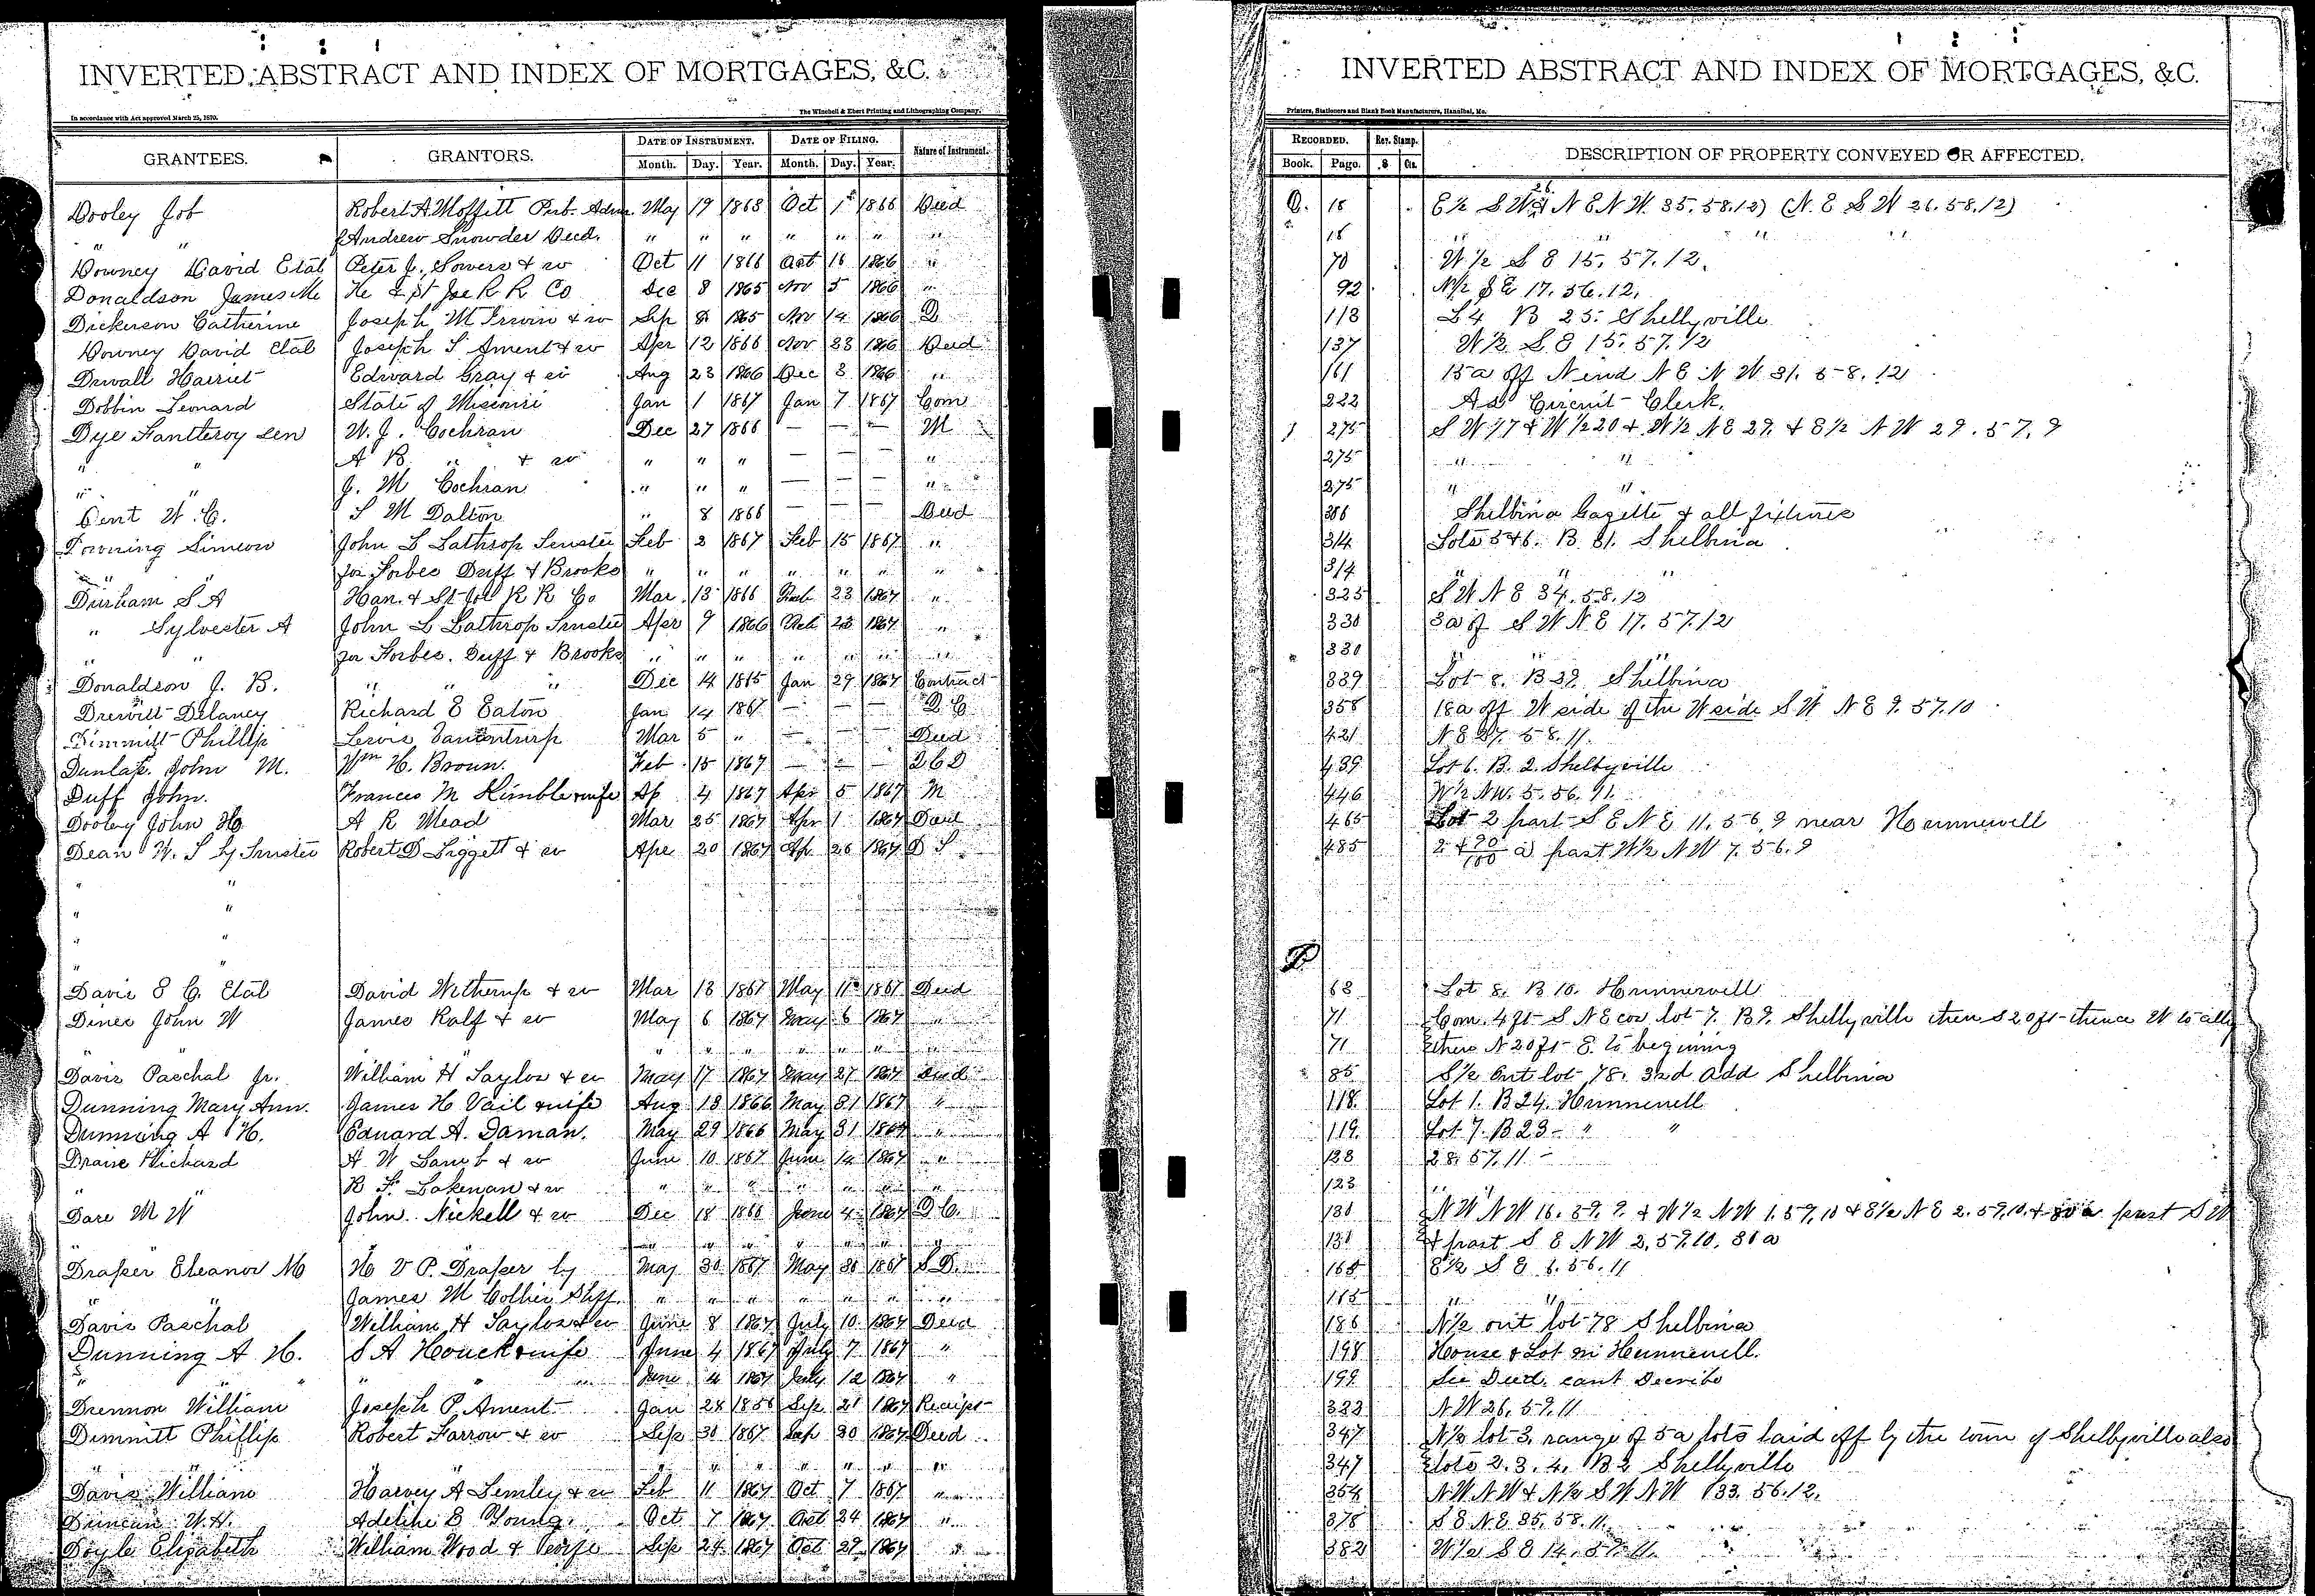 INVERTED ABSTRACT AND INDEX OF MORTGAGES, &C.
In accordance with Act approved March 25, 1870.
The Winchell & Ebert Printing and Lithographing Company,
GRANTEES. GRANTORS. DATE OF INSTRUMENT. DATE OF FILING. Nature of Instrument.
Month. Day. Year. Month. Day. Year.
Dooley Job Robert A. Moffitt Pub. Adm. May 19 1868 Oct 1st 1866 Deed
" " f Andrew Snowder Decd. " " " " " " "
Downey David Etal Peter J. Sowers & w Oct 11 1866 Oct 16 1866 "
Donaldson James Mc He & St Joe R R Co Dec 8 1865 Nov 5 1866 "
Dickerson Catherine Joseph M Irwin & w Sep 8 1865 Nov 14 1866 D
Downey David Etal Joseph T Ament & w Apr 12 1866 Nov 23 1866 Deed
Duvall Harriet Edward Gray & w Aug 23 1866 Dec 3 1866 "
Dobbin Leonard State of Missouri Jan 1 1867 Jan 7 1867 Com
Dye Fantleroy Sen W. J. Cochran Dec 27 1866 — — — M
" " A B " & w " " " — — — "
" " J. M Cochran " " " — — — "
Dent W. C. S M Dalton " 8 1866 — — — Deed
Downing Simeon John L Lathrop Trustee Feb 2 1867 Feb 15 1867 "
" " for Forbes Duff & Brooks " " " " " " "
Durham S A Han. & St Joe R R Co Mar 13 1866 Feb 23 1867 "
" Sylvester A John L Lathrop Trustee Apr 9 1866 Feb 23 1867 "
" " for Forbes. Duff & Brooks " " " " " " "
Donaldson J. B. " " " Dec 14 1865 Jan 29 1867 Contract
Drewitt Delaney Richard E Eaton Jan 14 1867 — — — D C
Dimmitt Phillip Lewis Vanentrusp Mar 5 " — — — Deed
Dunlap. John M. Wm H. Brown. Feb 15 1867 — — — D C D
Duff John. Frances M Kimble & wife Ap 4 1867 Apr 5 1867 M
Dooley John H. A R Mead Mar 25 1867 Apr 1 1867 Deed
Dean W. S by Trustee Robert D Liggett & w Apr 20 1867 Ap 26 1867 D S
" "
" "
" "
" "
Davis E C. Etal David Witherup & w Mar 13 1867 May 11 1867 Deed
Dines John W James Ralf & w May 6 1867 May 6 1867 "
" " " " " " "
Davis Paschal Jr. William H Saylor & w May 17 1867 May 27 1867 Deed
Dunning Mary Ann. James H Vail & wife Aug 13 1866 May 31 1867 "
Dunning A H. Eduard A. Daman. May 29 1866 May 31 1867 "
Draise Richard A W Lamb & w June 10 1867 June 14 1867 "
" " R F. Lakenan & w " " " " " " "
Dare M W John. Nickell & w Dec 18 1866 June 4 1867 D C.
" " " " " " "
Draper Eleanor M H V P. Draper by May 30 1867 May 30 1867 S D.
" " James M Collier Shff. " " " " " " "
Davis Paschal William H Saylor & w June 8 1867 July 10 1867 Deed
Dunning A H. S A Houck & wife June 4 1867 July 7 1867 "
" " " " " June 4 1867 July 12 1867 "
Drennon William Joseph P. Ament Jan 28 1856 Sep 21 1867 Receipt
Dimmitt Phillip Robert Farrow & w Sep 30 1867 Sep 30 1867 Deed
" " " " " " " " "
Davis William Harvey A Lemley & w Feb 11 1867 Oct 7 1867 "
Duncan W. H. Adeline E Young. Oct 7 1867 Oct 24 1867 "
Doyle Elizabeth William Wood & Sep 24 1867 Oct 29 1867 "
INVERTED ABSTRACT AND INDEX OF MORTGAGES, &C.
Printers, Stationers and Blank Book Manufacturers, Hannibal, Mo.
RECORDED. Rev. Stamp. DESCRIPTION OF PROPERTY CONVEYED OR AFFECTED.
Book. Page. $ Cts.
Q. 18 E½ S W 26 & N E N W. 35. 58. 12) (N. E S W 26. 58. 12)
18 " " " "
70 W ½ S E 15. 57. 12.
92 N½ S E 17. 56. 12.
113 L 4 B 25. Shelbyville
137 W ½ S E 15. 57. 12
161 15 a off N end N E N W 31. 58. 12
222 As Circuit Clerk.
275 S W 17 & W ½ 20 & W ½ N E 29. & E ½ N W 29. 57. 9
275 " "
275 " "
306 Shelbina Gazette & all fixtures
314 Lots 5 & 6. B. 31. Shelbina
314 " " "
325 S W N E 34. 58. 12
330 3 a of S W N E 17. 57. 12
330 " " "
339 Lot 8. B 39. Shelbina
358 18 a off W side of the W side S W N E 9. 57. 10
421 N E 27. 58. 11.
439 Lot 6. B. 2. Shelbyville
446 W ½ NW. 5. 56. 11.
465 Lot 2 part S E N E 11. 56. 9 near Hunnewell
485 2 & 90/100 a part W ½ N W 7. 56. 9
R
63 Lot 8. B 10. Hunnewell
71 Com. 4 ft S N E cor lot 7. B 9. Shelbyville then S 20 ft thence W to ally
71 then N 20 ft E. to begining
85 S ½ Out lot 78. 32d Add Shelbina
118 Lot 1. B 24. Hunnewell
119 Lot 7. B 23 " "
123 28. 57. 11
123 " "
130 N W N W 16. 59. 9. & W ½ N W 1. 59. 10 & E ½ N E 2. 59. 10. & 80 a part S W
130 & part S E N W 2. 59. 10. 81 a
165 E ½ S E 6. 56. 11
165 " "
186 N ½ out lot 78 Shelbina
198 House & Lot in Hunnewell.
199 See Deed. cant Decribe
323 N W 26. 59. 11
347 N ½ lot 3. range of 5 a lots laid off by the town of Shelbyville also
347 lots 2. 3. 4. B 2 Shelbyville
354 N W N W & N ½ S W N W 33. 56. 12.
378 S E N E 35. 58. 11.
382 W ½ S E 14. 57. 11.